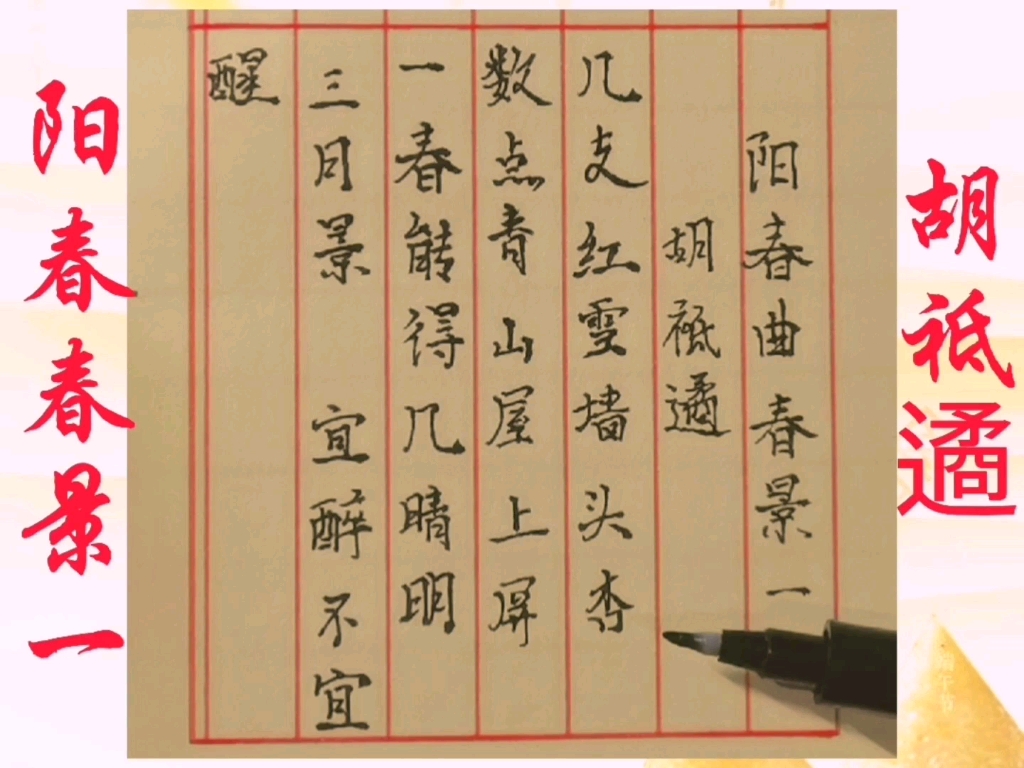 阳春春景一
胡祗遹
阳春曲春景一
胡祗遹
几支红雪墙头杏
数点青山屋上屏
一春能得几晴明
三月景 宜醉不宜
醒
端午节